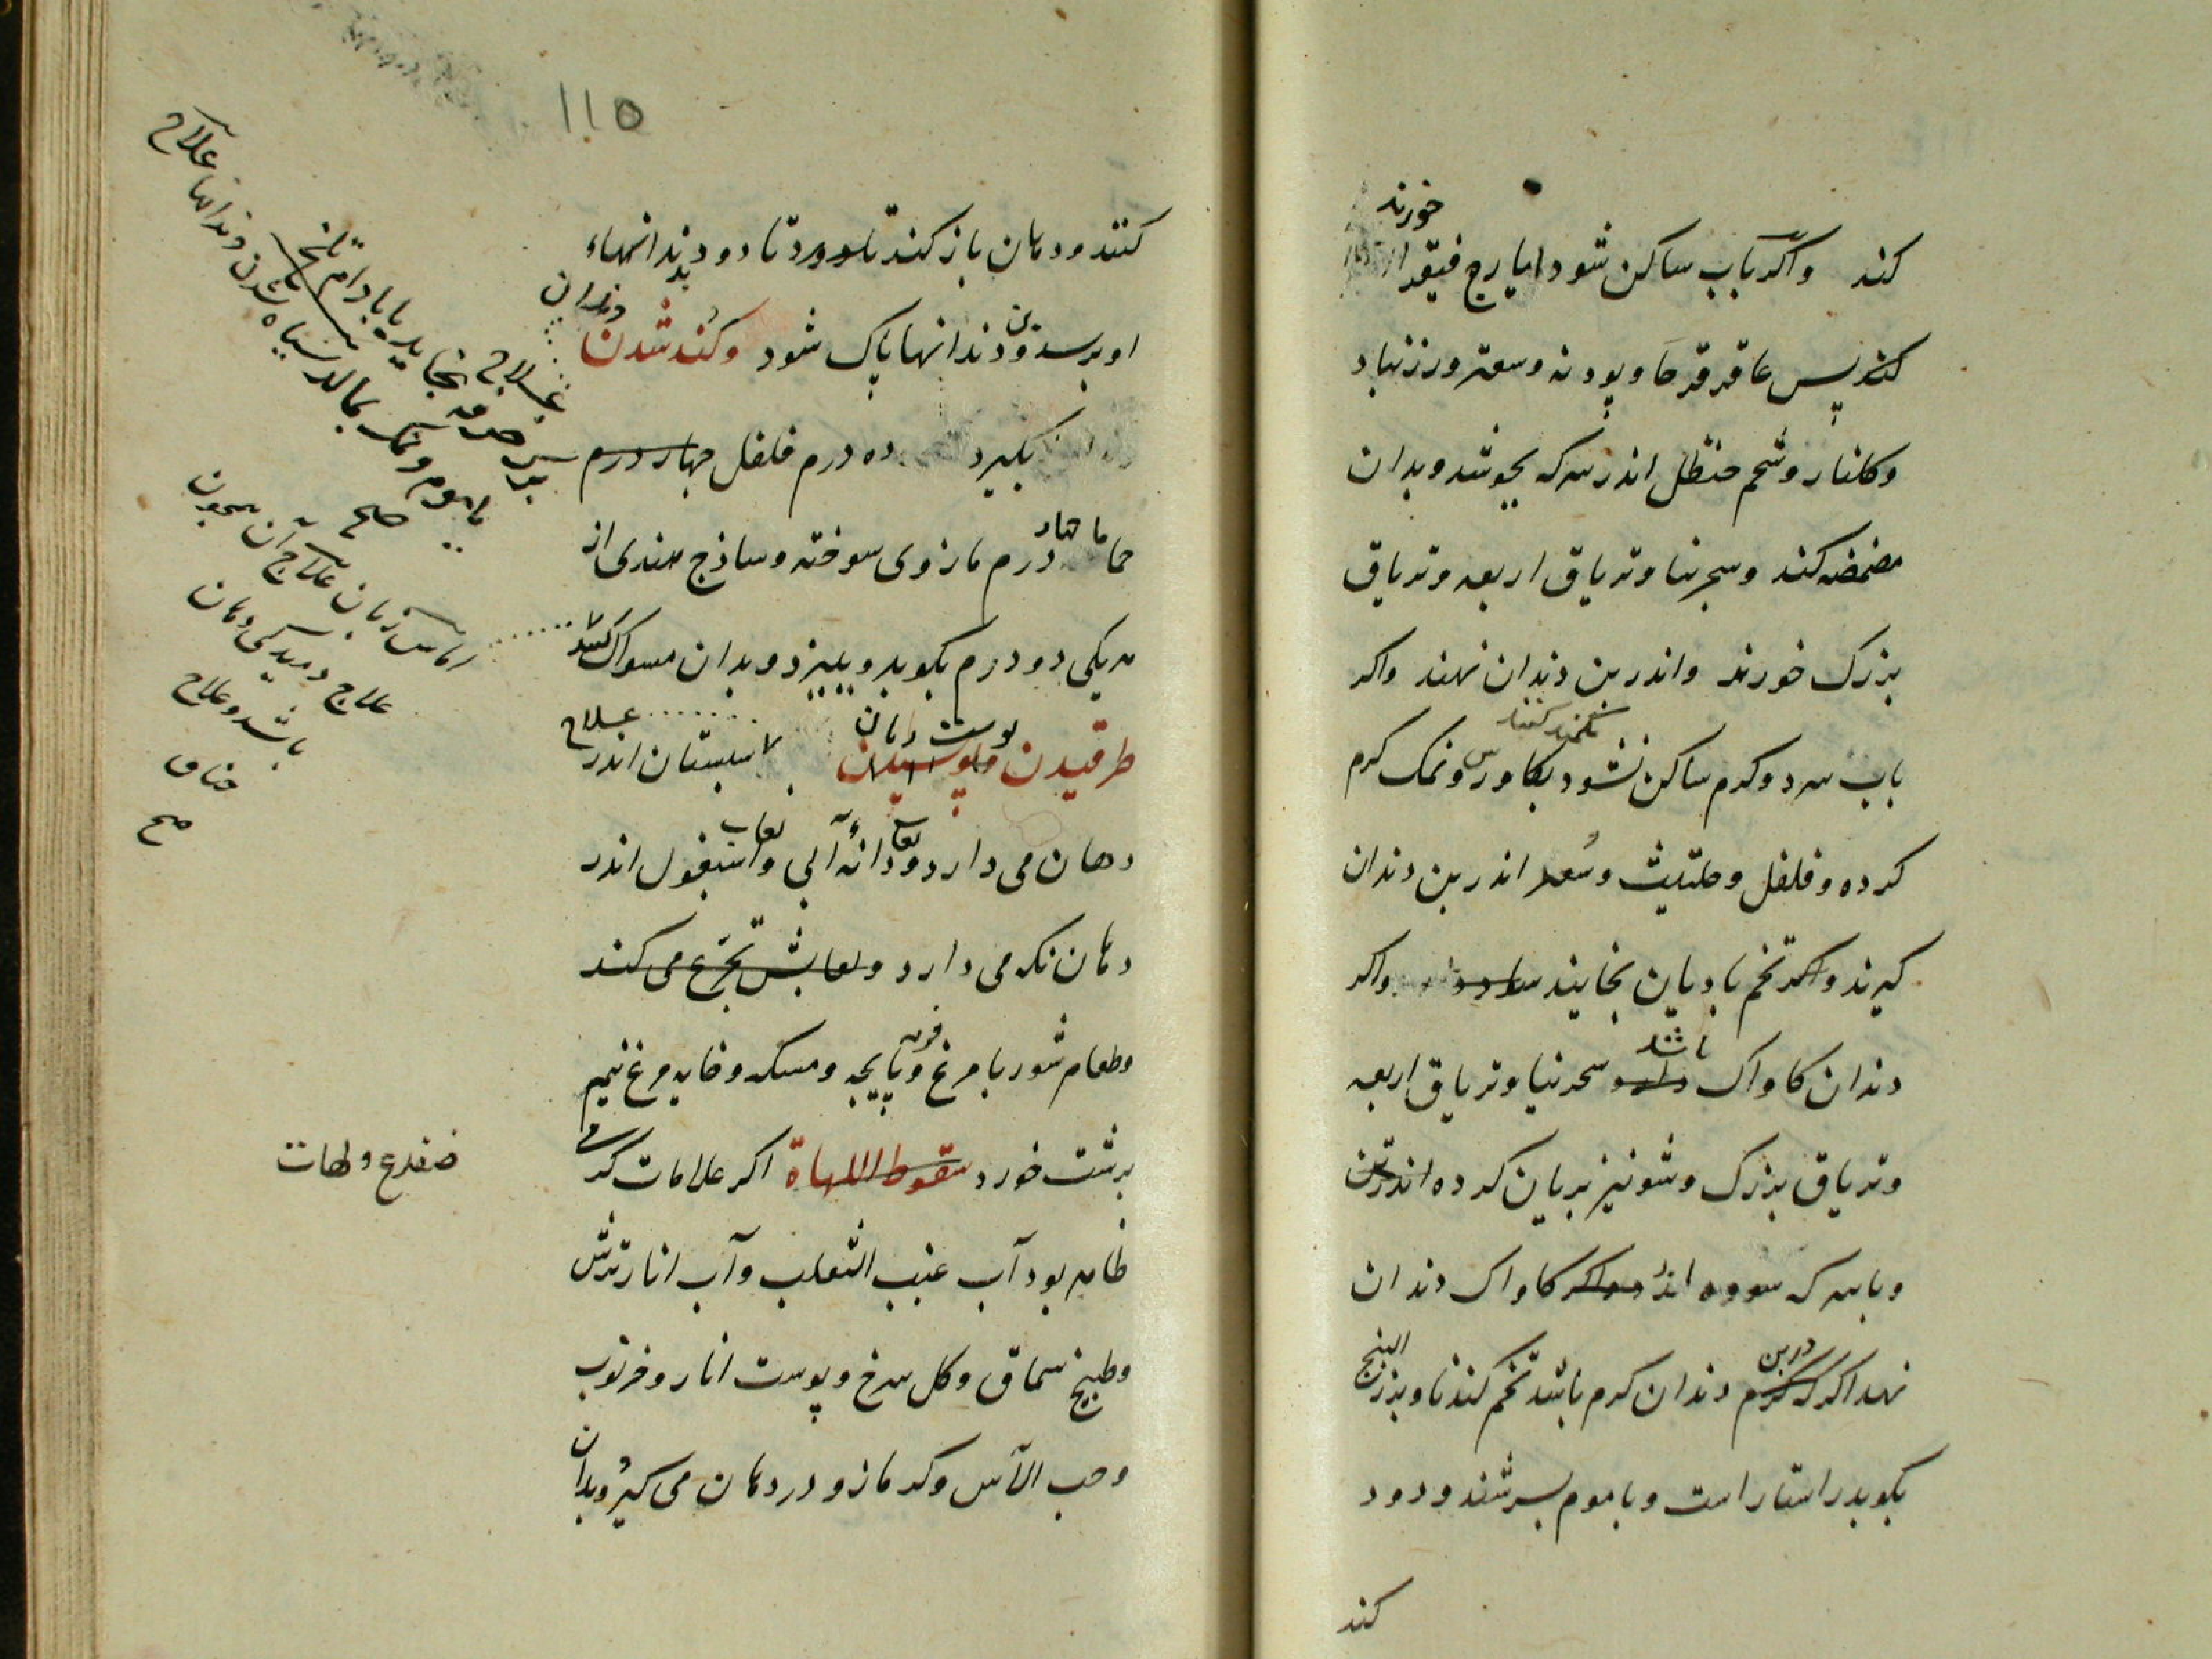 خورند
کند واکر باب ساکن شود ایارج فیقرا
کنند پس عاقرقرحا و پودنه وسعتر ورزنباد
وکلنار وشحم حنظل اندر سرکه بجوشد وبدان
مضمضه کند وسجرینا وتریاق اربعه وتریاق
بزرک خورند واندر بن دندان نهند واکر
تکمید کنند
باب سرد وکرم ساکن نشود بکاورس ونمک کرم
کرده وفلفل وحلتیت وسُعد اندر بن دندان
کیرند واکر تخم بادیان بخایند واکر
باشد
دندان کاواک سجرنیا وتریاق اربعه
وتریاق بزرک وشونیز بریان کرده اندرین
وباسرکه سوده اندر کاواک دندان
دربن
البنج
نهد اکر کرم دندان کرم باشد تخم کندنا وبذر
بکوبد راستاراست وباموم بسرشند ودود
کند
۱۱۵
کنند ودهان باز کند تا دود بدندانهاء
او برسد ودندانها پاک شود وکُند شدن
دندان
بکیرد ده درم فلفل چهار درم
حماما چهار درم مازوی سوخته وساذج هندی از
هریکی دو درم بکوبد و ببیزد وبدان مسواک کند
پوست دهان
علاج
طرقیدن سبستان اندر
دهان می دارد ولعاب دانهٔ آبی ولعاب اسبغول اندر
دهان نکه می دارد ولعابش تجرع می کند
وطعام شوربا مرغ فربه وپایچه ومسکه وخایه مرغ نیم
برشت خورد سقوط اللهاة اکر علامات کرمی
ظاهر بود آب عنب الثعلب وآب انار ترش
وطبیخ سماق وکل سرخ وپوست انار وخرنوب
وحب الآس وکزمازو در دهان می کیرد وبدان
علاج
برک خرفه بخاید یا بادام تلخ
یا موم ونمک بمالد سیاه شدن دندانها علاج
صح
اماس زبان علاج آن معجون
علاج دمیدکی دهان
باشد وعلاج
خناق
صح
ضفدع ولهات